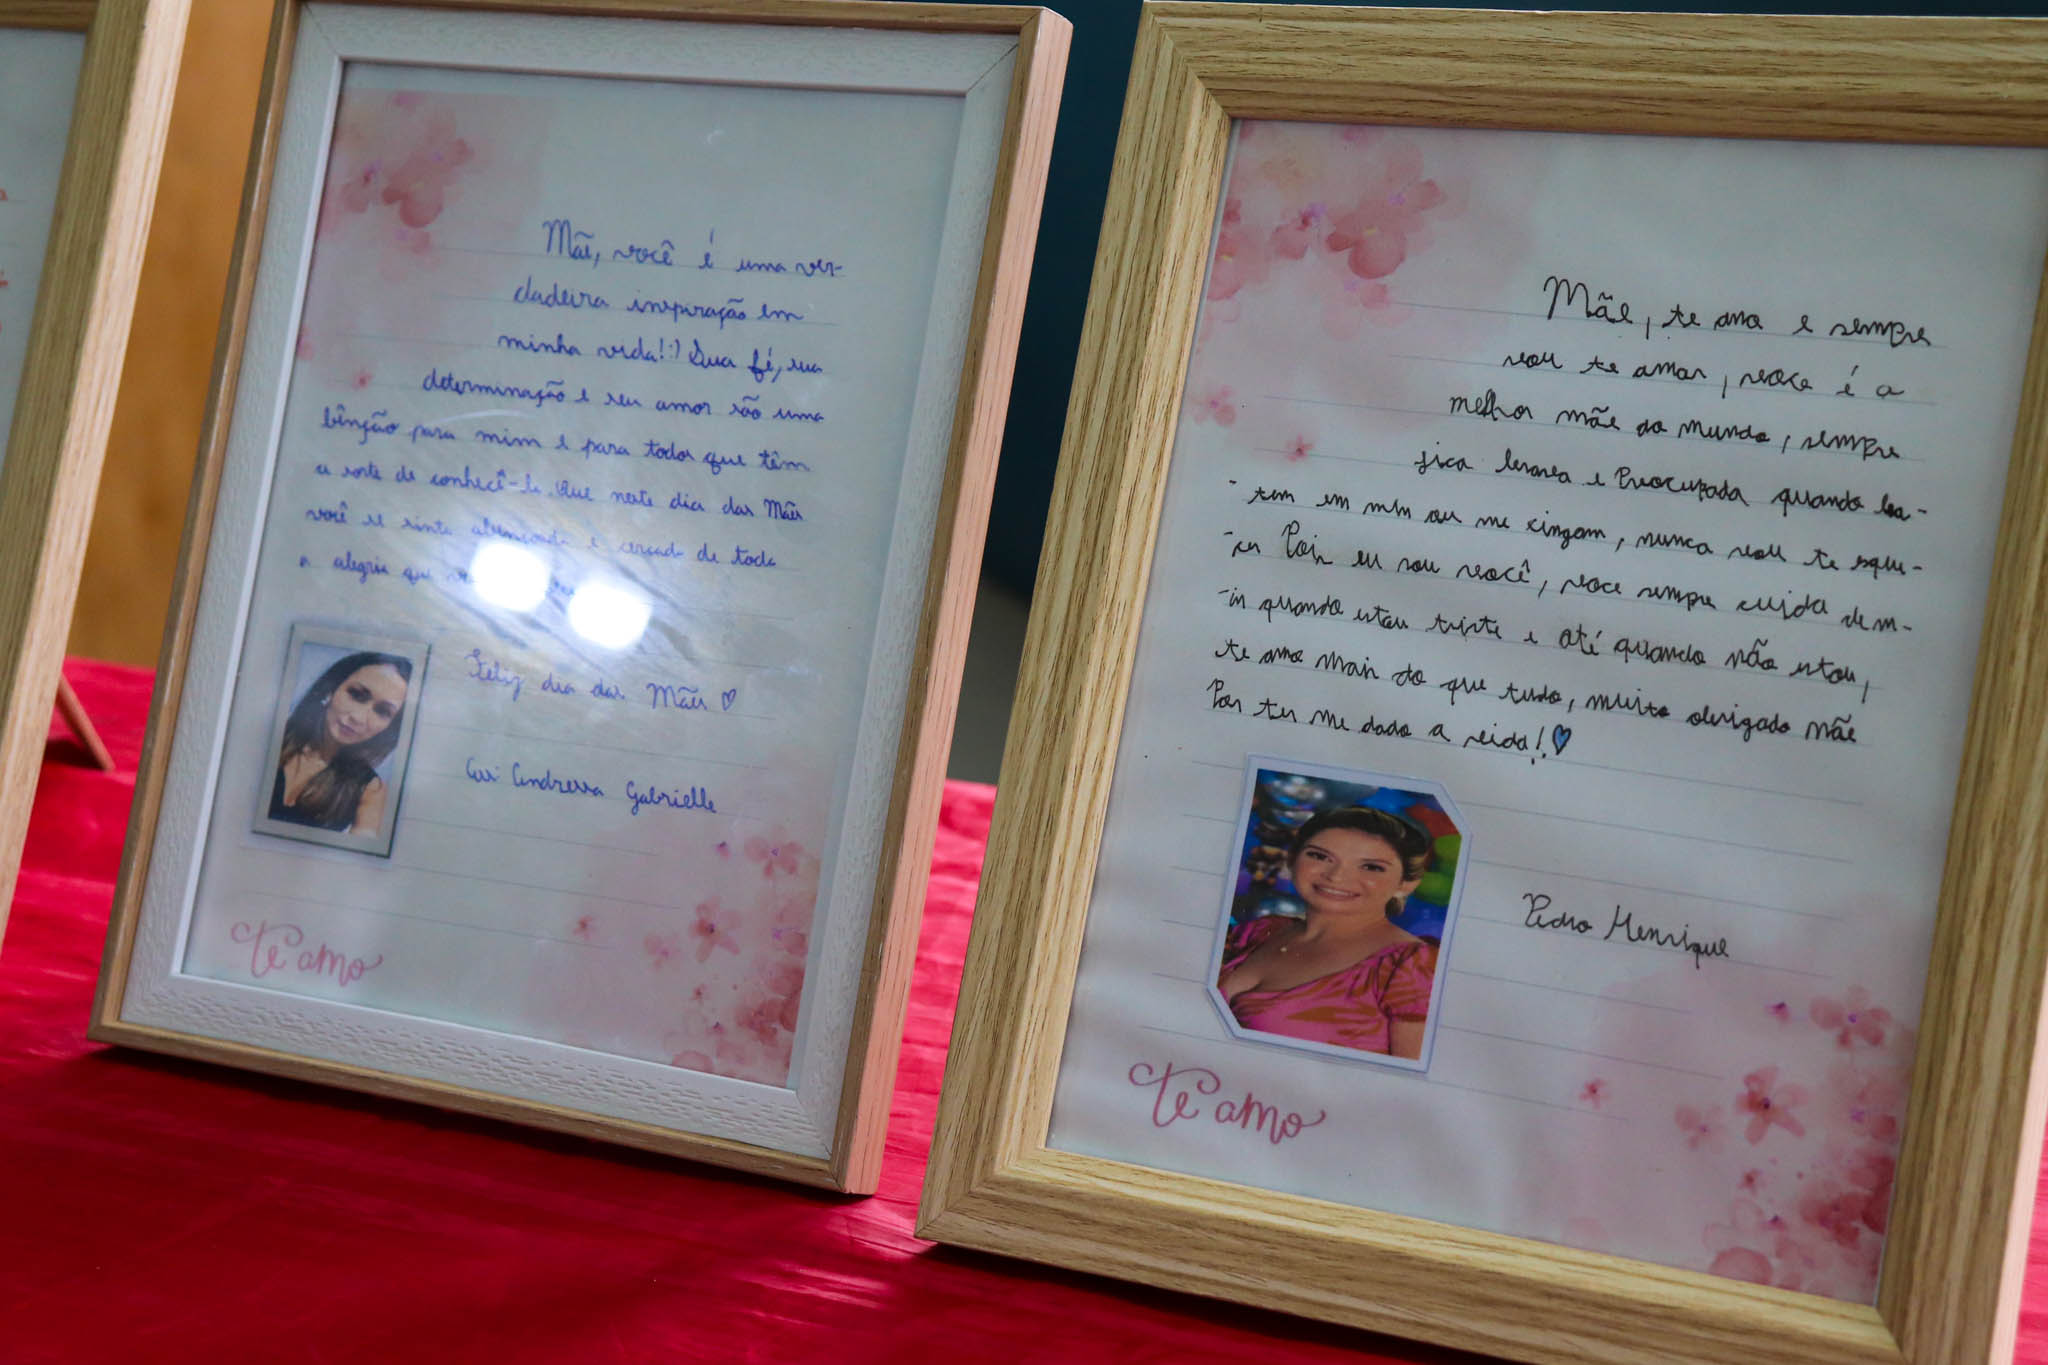 Mãe, você é uma ver-
dadeira inspiração em
minha vida!:) Sua fé, sua
determinação e seu amor são uma
bênção para mim e para todos que têm
a sorte de conhecê-la. Que neste dia das Mães
você se sinta abençoada e cercada de toda
a alegria que
Feliz dia das Mães ♡
Andressa Gabrielle
te amo
Mãe, te amo e sempre
vou te amar, voce é a
melhor mãe do mundo, sempre
fica brava e Preocupada quando ba-
-tem em mim ou me xingam, nunca vou te esque-
-cer Pois eu sou você, voce sempre cuida de m-
-im quando estou triste e até quando não estou,
te amo mais do que tudo, muito obrigado mãe
Por ter me dado a vida! ♡
Pedro Henrique
te amo